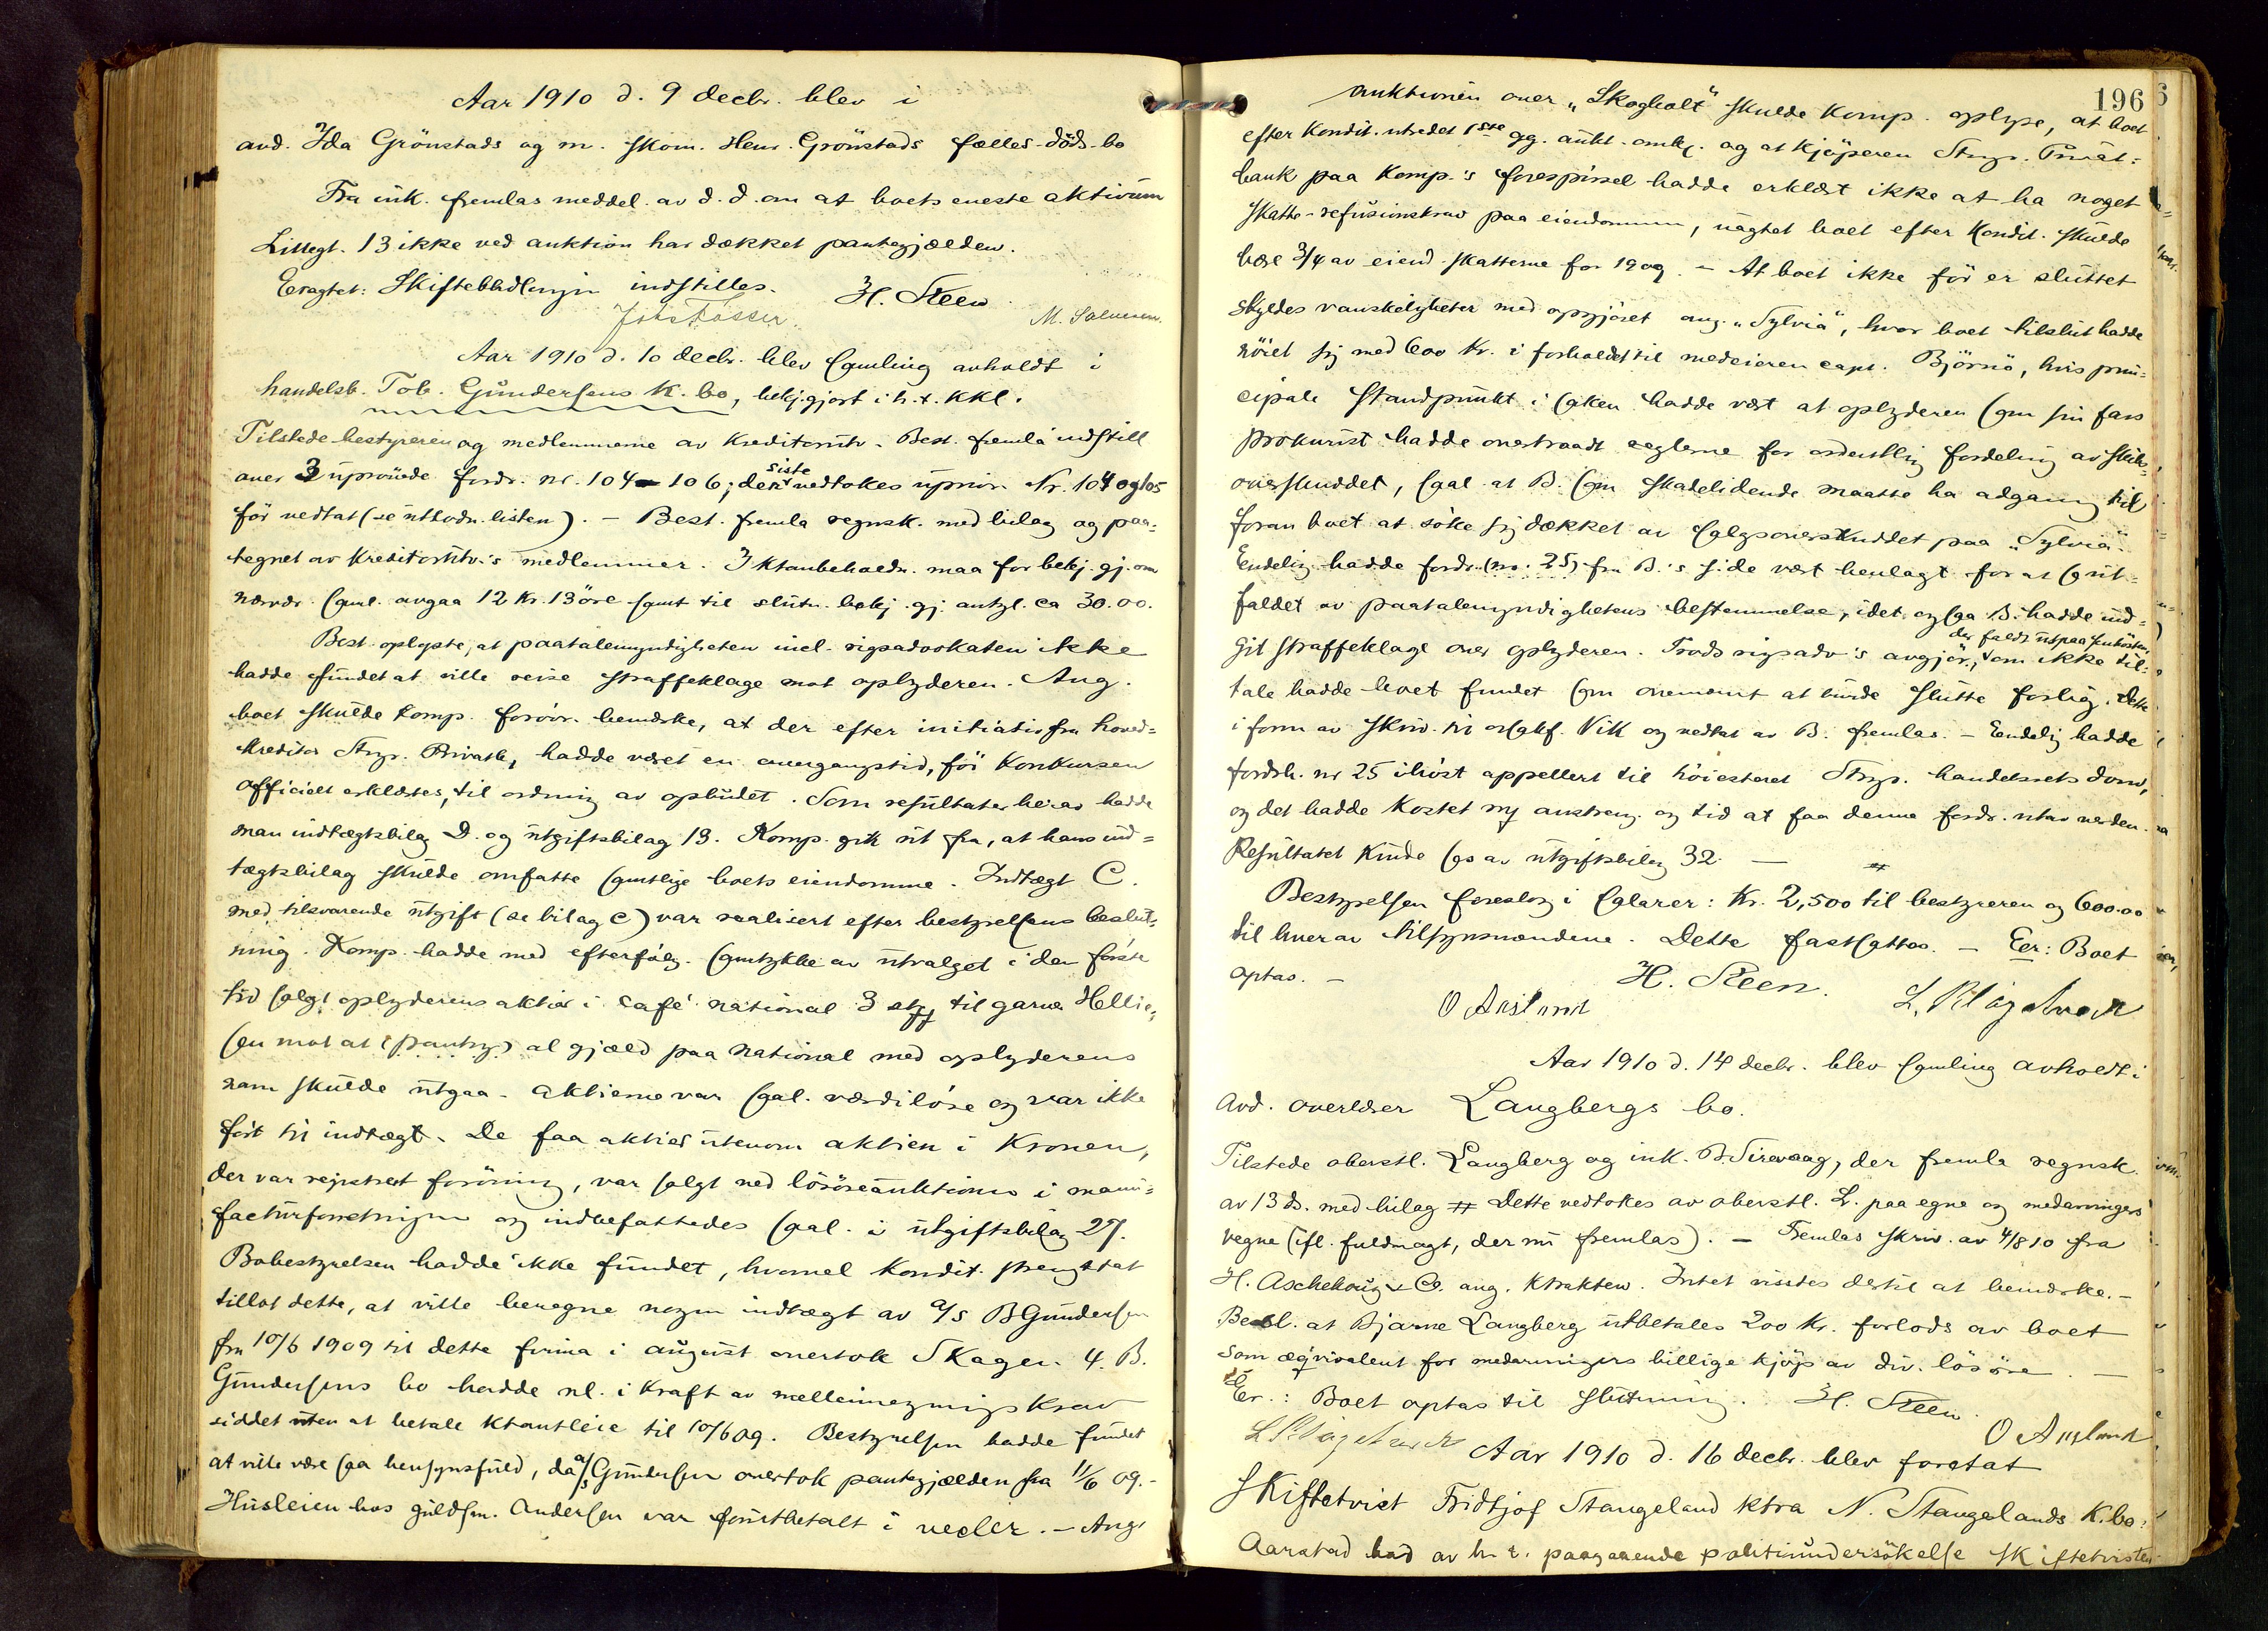 Aar 1910 d. 9 decbr. blev i
avd. Ida Grönstads og m. skom. Henr. Grönstads fælles-döds-bo
Fra ink. fremlas meddel. av d. d. om at boets eneste aktivum
Lillegt. 13 ikke ved auktion har dækket pantegjælden.
Eragtet: Skiftebhdlingen indstilles. H. Steen
M. Salvesen.
Aar 1910 d. 10 decbr. blev samling avholdt i
handelsb. Tob. Gundersens K. bo, bekj.gjort i h. t. KKl.
Tilstede bestyreren og medlemmerne av Kreditorutv. Best. fremla indstill
over 3 uprövede fordr. nr. 104 - 106; den siste vedtokes uprör. Nr. 104 og 105
för vedtat (se utlodn. listen). - Best. fremla regnsk. med bilag og paa-
tegnet av Kreditorutv.'s medlemmer. I Ktanbeholdn. maa for bekj. gj. om
nærvær. saml. avgaa 12 Kr. 13 öre samt til slutn. bekj. gj. antgl. ca 30.00.
Best. oplyste, at paatalemyndigheten incl. rigsadvokaten ikke
hadde fundet at ville reise straffeklage mot oplyderen. Ang.
boet skulde Komp. forövr. bemærke, at der efter initiativ fra hoved-
kreditor Stvgr. Privatb, hadde været en overgangstid, för Konkursen
officielt erklærtes, til ordning av opbudet. Som resultater herav hadde
man indtægtsbilag D. og utgiftsbilag 13. Komp. gik ut fra, at hans ind-
tægtsbilag skulde omfatte samtlige boets eiendomme. Indtægt C.
med tilsvarende utgift (se bilag C) var realisert efter bestyrelsens beslut-
ning. Komp. hadde med efterfölg. samtykke av utvalget i den förste
tid solgt oplyderens aktier i café national 3 stkr til garver Hellie-
sen mot at (pantsg) al gjæld paa National med oplyderens
navn skulde utgaa. Aktierne var saal. værdilöse og var ikke
fört til indtægt. De faa aktier utenom aktien i Kronen,
der var registrert foröning, var solgt ved lösöreauktionen i manu-
facturforretningen og indbefattedes saal. i utgiftsbilag 27.
Bobestyrelsen hadde ikke fundet, hvorvel Kondit. strengt tat
tillot dette, at ville beregne nogen indtægt av a/s B Gundersen
fra 10/6 1909 til dette firma i august overtok Skagen 4. B.
Gundersens bo hadde nl. i Kraft av mellemregnings Krav
siddet uten at betale Ktantleie til 10/6 09. Bestyrelsen hadde fundet
at ville være saa hensynsfuld, da a/s Gundersen overtok pantegjælden fra 11/6 09.-
Husleien hos guldsm. Andersen var forutbetalt i veder. - Ang.
196
auktionen over "Skogholt" skulde Komp. oplyse, at boet
efter Kondit. utredet 1ste gg. aukt. omk. og at Kjöperen Stvgr. Privat-
bank paa Komp.'s forespörsel hadde erklært ikke at ha noget
skatte-refusionskrav paa eiendommen, uagtet boet efter Kondit. skulde
bære 3/4 av eiend. skatterne for 1909. - At boet ikke för er sluttet
skyldes vanskeligheter med opgjöret ang. "Sylvia", hvor boet tilslut hadde
nöiet sig med 600 Kr. i forholdet til medeieren capt. Björnö, hvis prin-
cipale standpunkt i saken hadde vært at oplyderen som sin fars
prokurist hadde overtraadt reglerne for ordentlig fordeling av skibs-
overskuddet, saal. at B. som skadelidende maatte ha adgang til
foran boet at söke sig dækket av salgsoverskuddet paa "Sylvia".
Endelig hadde fordr. (nr. 25) fra B.'s side vært henlagt for at se ut-
faldet av paatalemyndighetens bestemmelse, idet ogsaa B. hadde ind-
git straffeklage over oplyderen. Trods rigsadv's avgjör., der faldt ut paa senhösten, om ikke til-
tale hadde boet fundet som ovennævnt at burde slutte forlig. Dette
i form av skriv. til orsakf. Vik og vedtat av B. fremlas. - Endelig hadde
fordrh. nr 25 ihöst appellert til höiesteret Stvgr. handelsrets dom,
og det hadde kostet ny anstreng. og tid at faa denne fordr. utav verden.
Resultatet Kunde ses av utgiftsbilag 32. -
Bestyrelsen foreslog i salarer: Kr. 2,500 til bestyreren og 600.00
til hver av tilsynsmændene. Dette fastsattes. - Eer: Boet
optas. -
H. Steen.
O Aasland
Aar 1910 d. 14 decbr. blev samling avholdt i
Avd. overlærer Langbergs bo.
Tilstede oberstl. Langberg og ink. B. Sirevaag, der fremla regnsk.
av 13 ds. med bilag # Dette vedtokes av oberstl. L. paa egne og medarvingers
vegne (ifl. fuldmagt, der nu fremlas). - Fremlas skriv. av 4/8 10 fra
H. Aschehoug & Co. ang. Ktrakten. Intet visstes dertil at bemærke. -
Besl. at Bjarne Langberg utbetales 200 Kr. forlods av boet
som æqvivalent for medarvingers billige kjöp av div. lösöre. -
Eer.: Boet optas til slutning. H. Steen.
O Aasland
Aar 1910 d. 16 decbr. blev foretat
Skiftetvist Fridtjof Stangeland Ktra N. Stangelands K. bo:
Aarstad bad av h. t. paagaaende politiundersökelse skiftetvisten